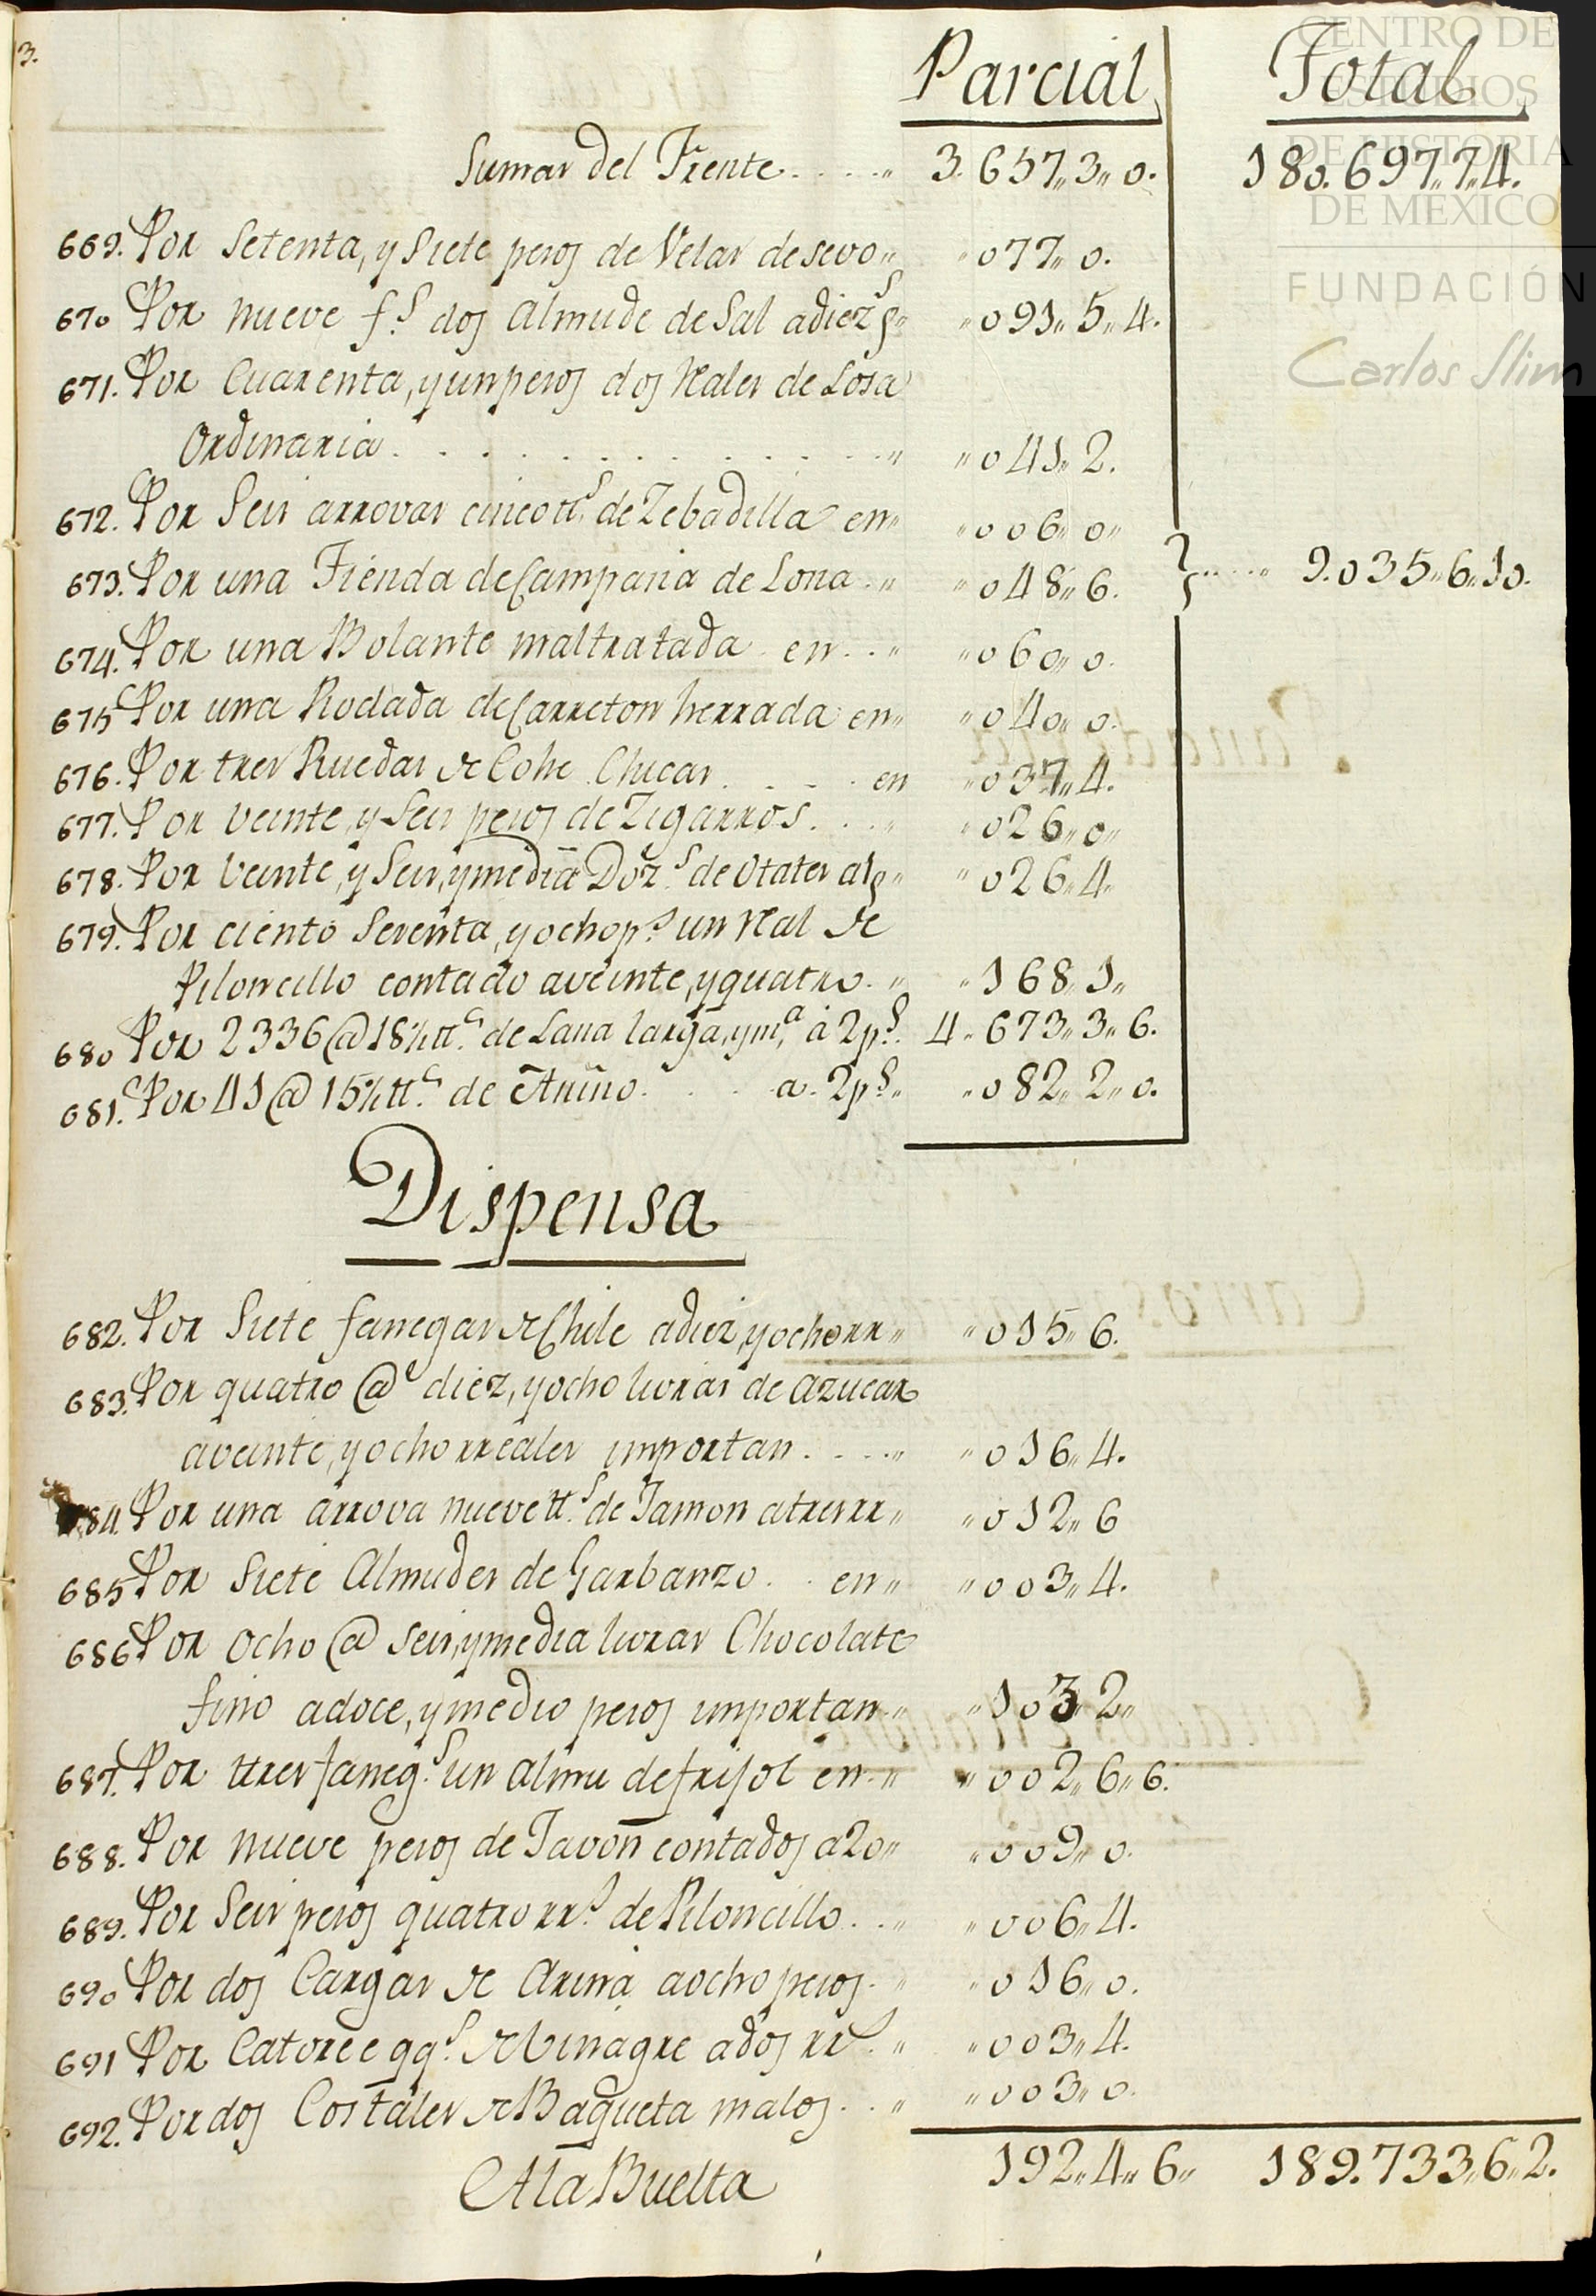 3.
Parcial Total
CENTRO DE
ESTUDIOS
DE HISTORIA
DE MEXICO
FUNDACIÓN
Carlos Slim
Sumas del Frente..... 3.657,,3,,0. 180.697,,7,,4.
669. Por Setenta, y Siete pesos de Velas de sevo,, ,,077,,0.
670 Por nueve f.s dos Almude de Sal a diez ps,, ,,091,,5,,4.
671. Por Cuarenta, y un pesos dos Rales de Losa
Ordinaria. . . . . . . . . . . . ,, ,,041,,2.
672. Por Seis arrovas cinco tt.s de Zebadilla en,, ,,006,,0,,
673. Por una Tienda de Campaña de Lona.,, ,,048,,6. }..... 9.035,,6,,10.
674. Por una Bolante maltratada en..,, ,,060,,0.
675 Por una Rodada de Carreton herrada en,, ,,040,,0.
676. Por tres Ruedas de Cohe Chicas. . . . en ,,037,,4.
677. Por veinte, y Seis pesos de Zigarros. . . ,, ,,026,,0,,
678. Por veinte, y Seis, y media Doz.s de Otates a 1p,, ,,026,,4.
679. Por ciento Sesenta, y ocho p.s un Ral de
Piloncillo contado a veinte, y quatro. ,, ,,168,,1,,
680 Por 2336 @ 18½ tt.s de Lana larga, y m.a a 2 p.s. 4.673,,3,,6.
681. Por 41 @ 15½ tt.s de Añino. . . . a. 2 p.s,, ,,082,,2,,0.
Dispensa
682. Por Siete fanegas de Chile a diez, y ocho rr,, ,,015,,6.
683. Por quatro @s diez, y ocho livras de azucar
a veinte, y ocho rreales importan. . . . ,, ,,016,,4.
84. Por una arrova nueve tt.s de Jamon a tres rr,, ,,012,,6
685 Por Siete Almudes de Garbanzo. . en,, ,,003,,4.
686 Por Ocho @ seis, y media livras Chocolate
fino a doce, y medio pesos importan,, ,,103,,2,,
687. Por tres faneg.s un almu de frisol en,, ,,002,,6,,6.
688. Por nueve pesos de Javon contados a 20,, ,,009,,0.
689. Por Seis pesos quatro rr.s de Piloncillo. . ,, ,,006,,4.
690 Por dos Cargas de Arina a ocho pesos. ,, ,,016,,0.
691 Por Catorce qq.s de Vinagre a dos rr.s. ,, ,,003,,4.
692. Por dos Costales de Baqueta malos. . ,, ,,003,,0.
192,,4,,6,, 189.733,,6,,2.
A la Buelta